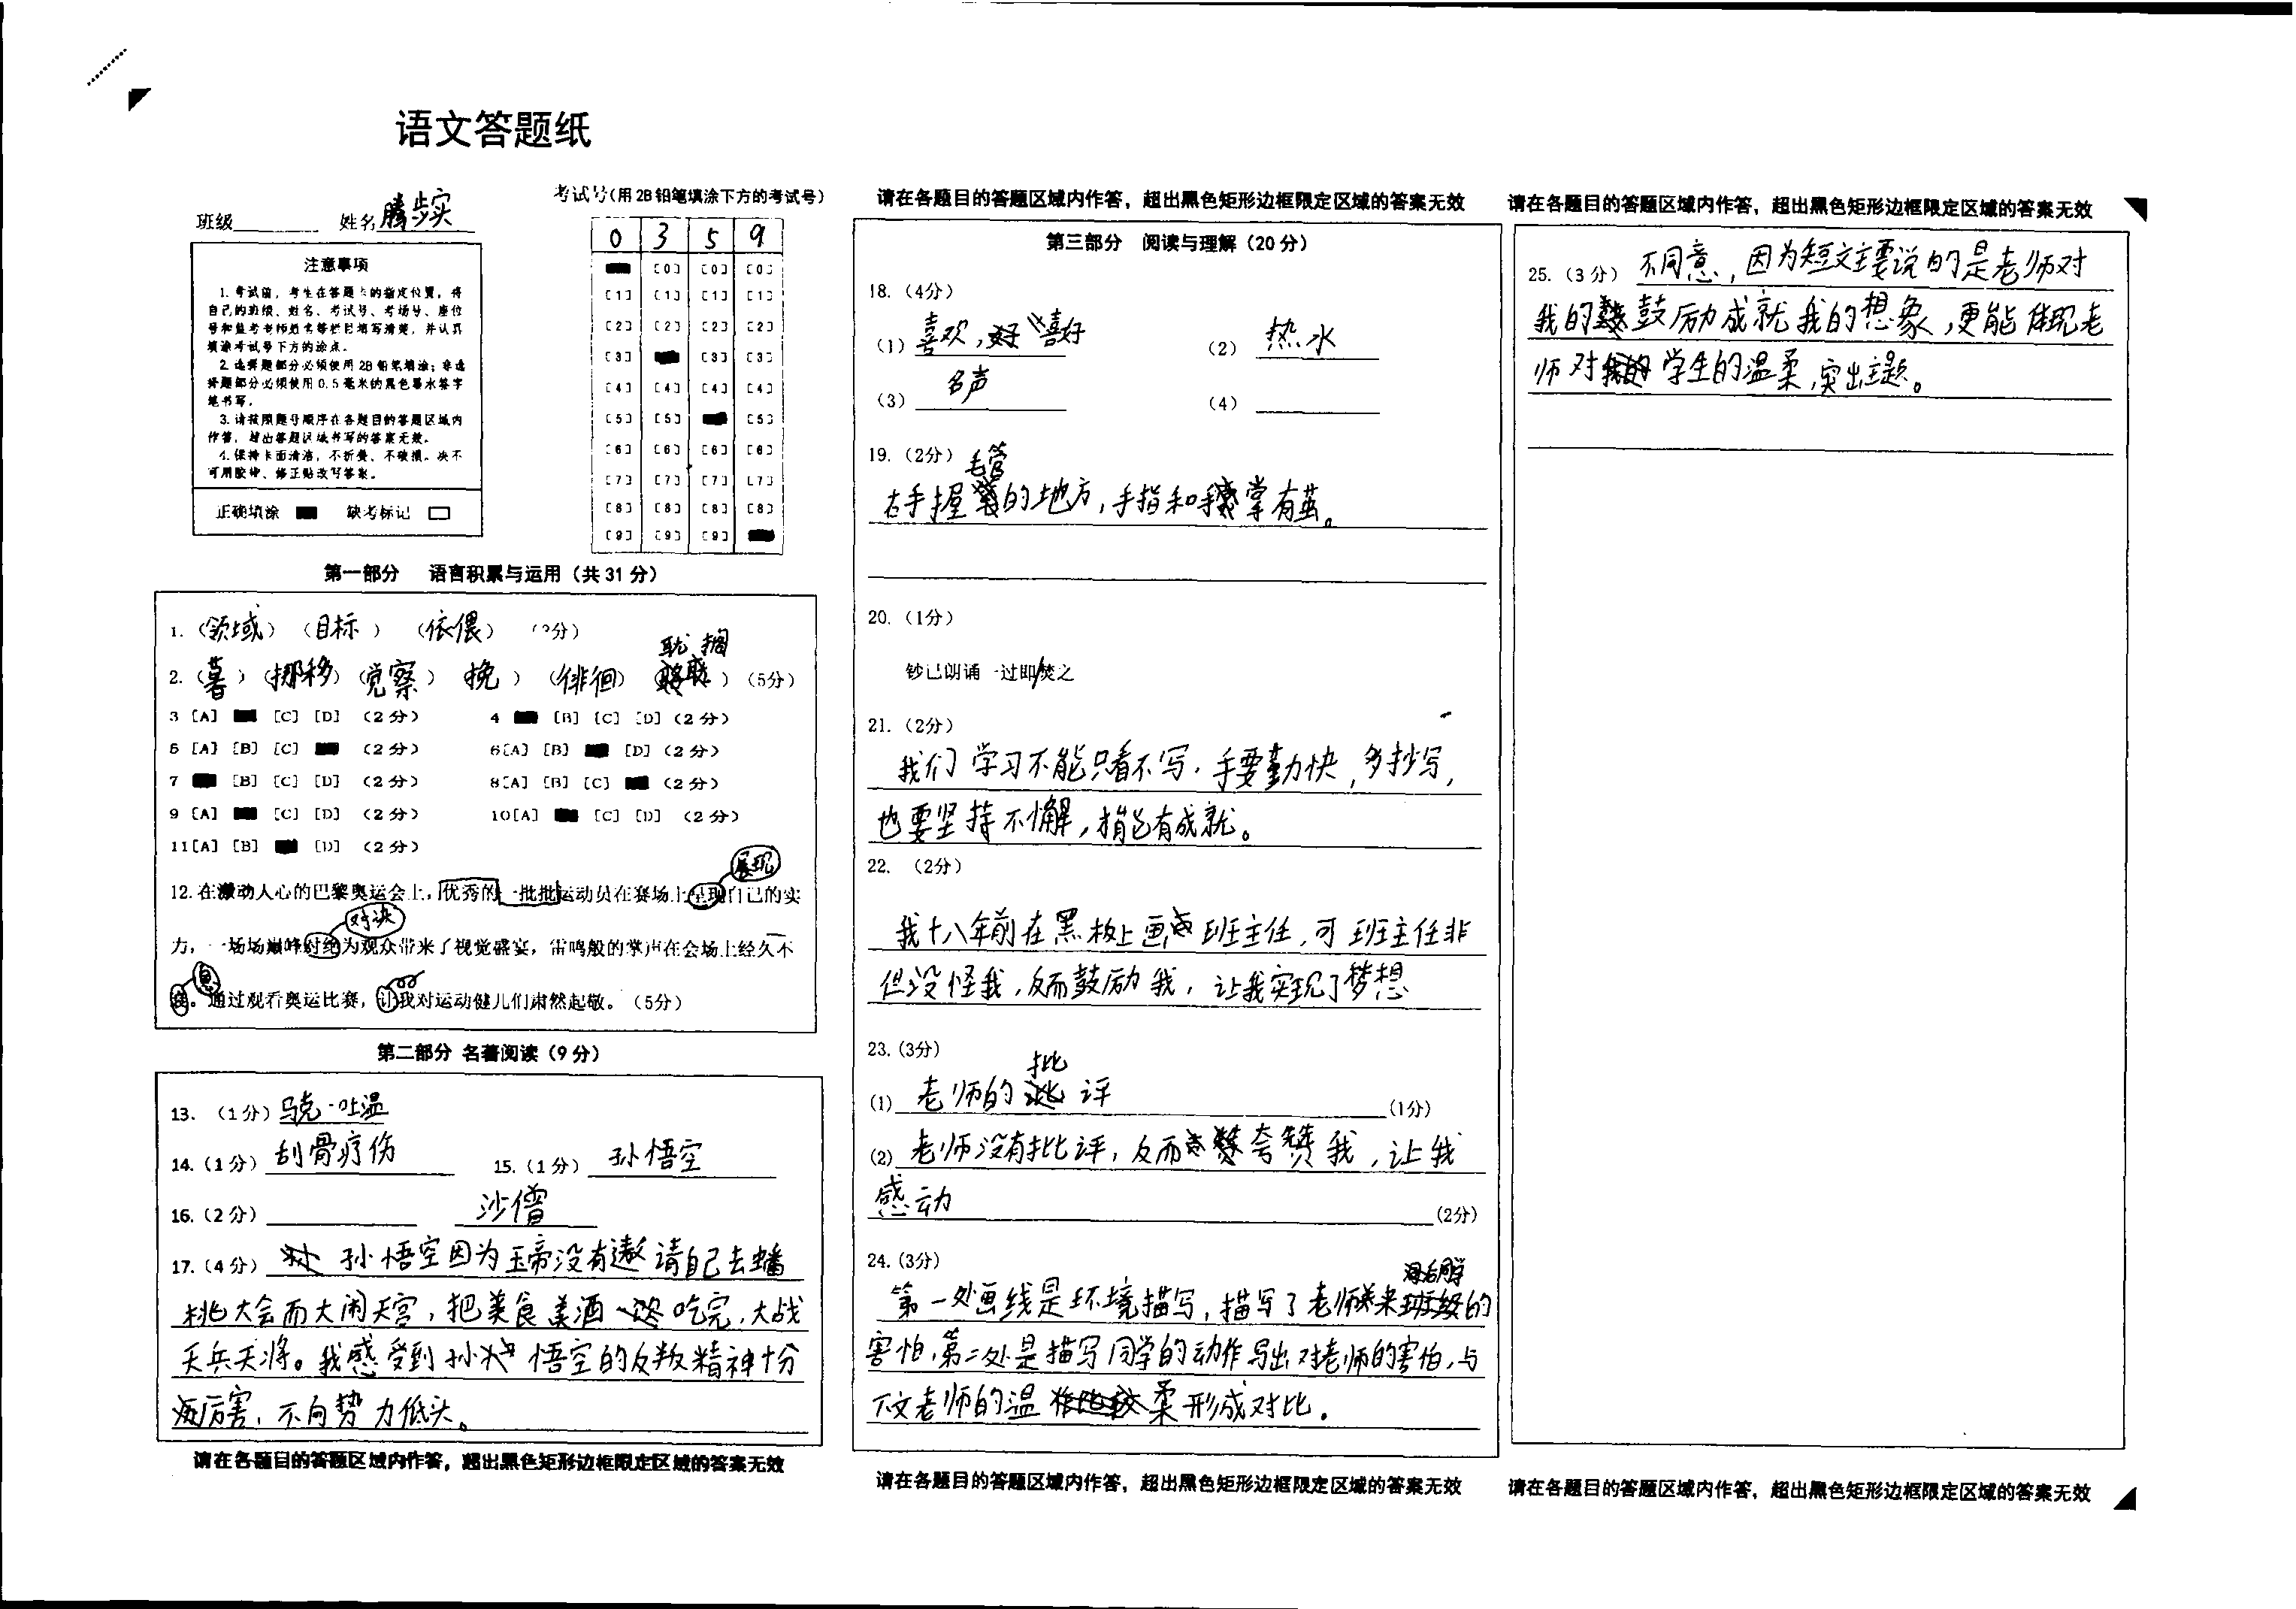 语文答题纸
班级 姓名 腾步实
考试号(用2B铅笔填涂下方的考试号)
0 3 5 9
[0] [0] [0]
[1] [1] [1] [1]
[2] [2] [2] [2]
[3] [3] [3]
[4] [4] [4] [4]
[5] [5] [5]
[6] [6] [6] [6]
[7] [7] [7] [7]
[8] [8] [8] [8]
[9] [9] [9]
注意事项
1. 考试前,考生在答题卡的指定位置,将
自己的班级、姓名、考试号、考场号、座位
号和监考老师姓名等栏目填写清楚,并认真
填涂考试号下方的涂点。
2. 选择题部分必须使用2B铅笔填涂;非选
择题部分必须使用0.5毫米的黑色墨水签字
笔书写。
3. 请按照题号顺序在各题目的答题区域内
作答,超出答题区域书写的答案无效。
4. 保持卡面清洁,不折叠、不破损。决不
可用胶带、修正贴改写答案。
正确填涂 缺考标记
第一部分 语言积累与运用(共31分)
1.(领域)(目标)(依偎)(2分)
耽搁
2.(暮)(挪移)(觉察)(挽)(徘徊)( )(5分)
3 [A] [C] [D] (2分) 4 [B] [C] [D] (2分)
5 [A] [B] [C] (2分) 6[A] [B] [D] (2分)
7 [B] [C] [D] (2分) 8[A] [B] [C] (2分)
9 [A] [C] [D] (2分) 10[A] [C] [D] (2分)
11[A] [B] [D] (2分)
展现
12. 在激动人心的巴黎奥运会上,优秀的一批批运动员在赛场上呈现自己的实
对决
力,一场场巅峰对绝为观众带来了视觉盛宴,雷鸣般的掌声在会场上经久不
息
。通过观看奥运比赛,让我对运动健儿们肃然起敬。(5分)
第二部分 名著阅读(9分)
13.(1分)马克·吐温
14.(1分)刮骨疗伤 15.(1分)孙悟空
16.(2分) 沙僧
17.(4分) 孙悟空因为玉帝没有邀请自己去蟠
桃大会而大闹天宫,把美食美酒吃完,大战
天兵天将。我感受到孙悟空的反叛精神十分
厉害,不向势力低头。
请在各题目的答题区域内作答,超出黑色矩形边框限定区域的答案无效
请在各题目的答题区域内作答,超出黑色矩形边框限定区域的答案无效
第三部分 阅读与理解(20分)
18.(4分)
(1)喜欢,喜好 (2)热水
(3)名声 (4)
19.(2分)
毛管
右手握的地方,手指和掌有茧。
20.(1分)
钞已朗诵一过即/焚之
21.(2分)
我们学习不能只看不写,手要勤快,多抄写,
也要坚持不懈,才能有成就。
22.(2分)
我十八年前在黑板上画班主任,可班主任非
但没怪我,反而鼓励我,让我实现了梦想
23.(3分)
批
(1)老师的评(1分)
(2)老师没有批评,反而夸赞我,让我
感动(2分)
24.(3分)
第一处画线是环境描写,描写了老师来的
害怕,第二处是描写同学的动作写出对老师的害怕,与
下文老师的温柔形成对比。
请在各题目的答题区域内作答,超出黑色矩形边框限定区域的答案无效
请在各题目的答题区域内作答,超出黑色矩形边框限定区域的答案无效
25.(3分)不同意,因为短文主要说的是老师对
我的鼓励成就我的想象,更能体现老
师对学生的温柔,突出主题。
请在各题目的答题区域内作答,超出黑色矩形边框限定区域的答案无效